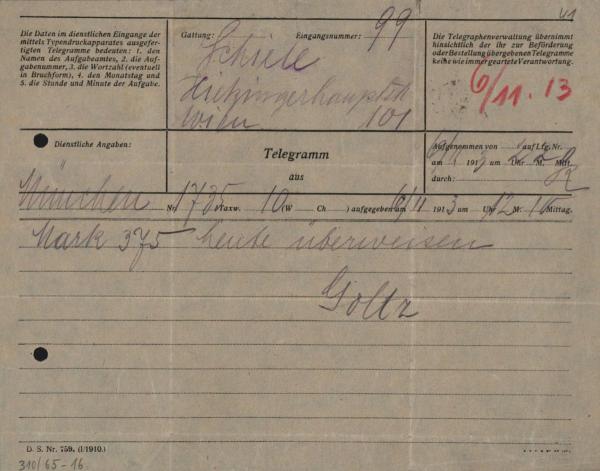 41
Die Daten im dienstlichen Eingange der
mittels Typendruckapparates ausgefer-
tigten Telegramme bedeuten: 1. den
Namen des Aufgabeamtes, 2. die Auf-
gabenummer, 3. die Wortzahl (eventuell
in Bruchform), 4. den Monatstag und
5. die Stunde und Minute der Aufgabe.
Gattung: Eingangsnummer: 99
Schiele
Hietzingerhauptstr
Wien 101
Die Telegraphenverwaltung übernimmt
hinsichtlich der ihr zur Beförderung
oder Bestellung übergebenen Telegramme
keine wie immer geartete Verantwortung.
6/11. 13
Dienstliche Angaben:
Telegramm
aus
Aufgenommen von auf Ltg. Nr.
am 6/11 191 um Uhr M. Mitt.
durch:
München Nr. 1735 Taxw. 10 (W Ch ) aufgegeben am 6/11 1913 um Uhr 12 M. 10 Mittag.
Mark 375 heute überweisen
Goltz
D. S. Nr. 759. (I/1910.)
310/65-16